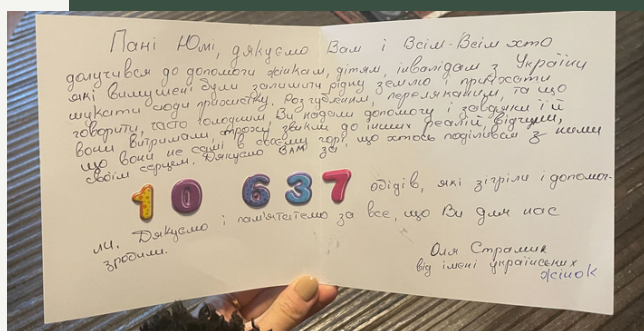 Пані Юмі, дякуємо Вам і Всім-Всім хто
долучився до допомоги жінкам, дітям, інвалідам з України
які вимушені були залишити рідну землю і приїхати
шукати сюди прихистку. Розгубленим, переляканим, та що
говорити, часто голодним Ви надали допомогу і завдяки їй
вони витримали, трохи звикли до інших реалій, відчули,
що вони не самі в своєму горі, що хтось поділився з ними
своїм серцем. Дякуємо Вам за
10 637 обідів, які зігріли і допомог-
ли. Дякуємо і пам'ятаємо за все, що Ви для нас
зробили.
Оля Страмик
від імені українських
жінок